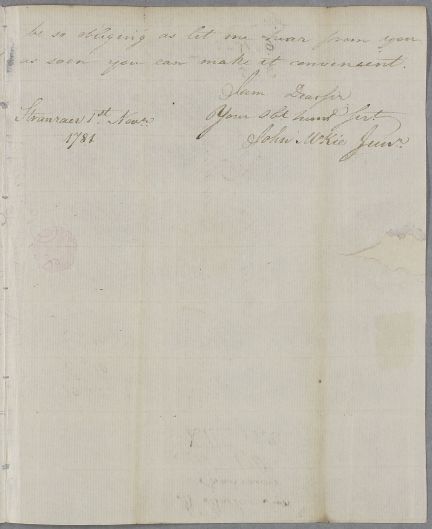 be so obliging as let me hear from you
as soon you can make it convenient.
I am Dear Sir
Your Obt huml Sert
John McKie Junr.
Stranraer 1st. Novr.
1781